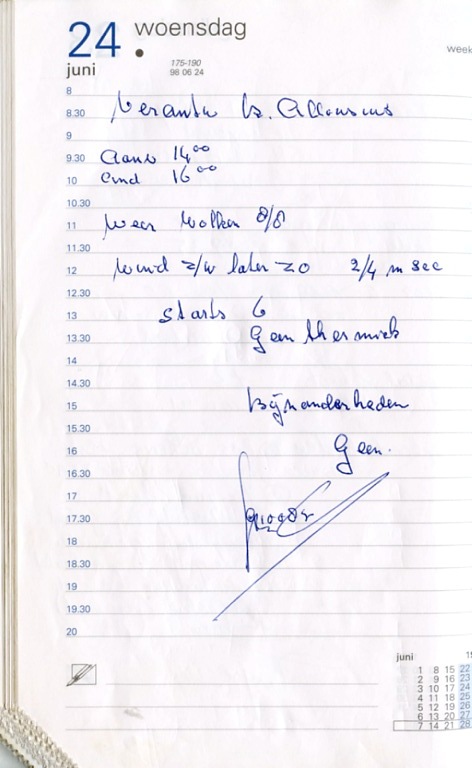 24 woensdag
juni
175-190
98 06 24
week
8
8.30 b. Alfonsius
9
9.30 Aanv 14,00
10 eind 16 00
10.30
11 weer wolken 8/8
11.30
12 wind z/w later zo 2/4 m sec
12.30
13 starts 6
13.30 Geen thermiek
14
14.30
15 Bijzonderheden
15.30
16 Geen.
16.30
17
17.30
18
18.30
19
19.30
20
juni
1 8 15 22
2 9 16 23
3 10 17 24
4 11 18 25
5 12 19 26
6 13 20 27
7 14 21 28